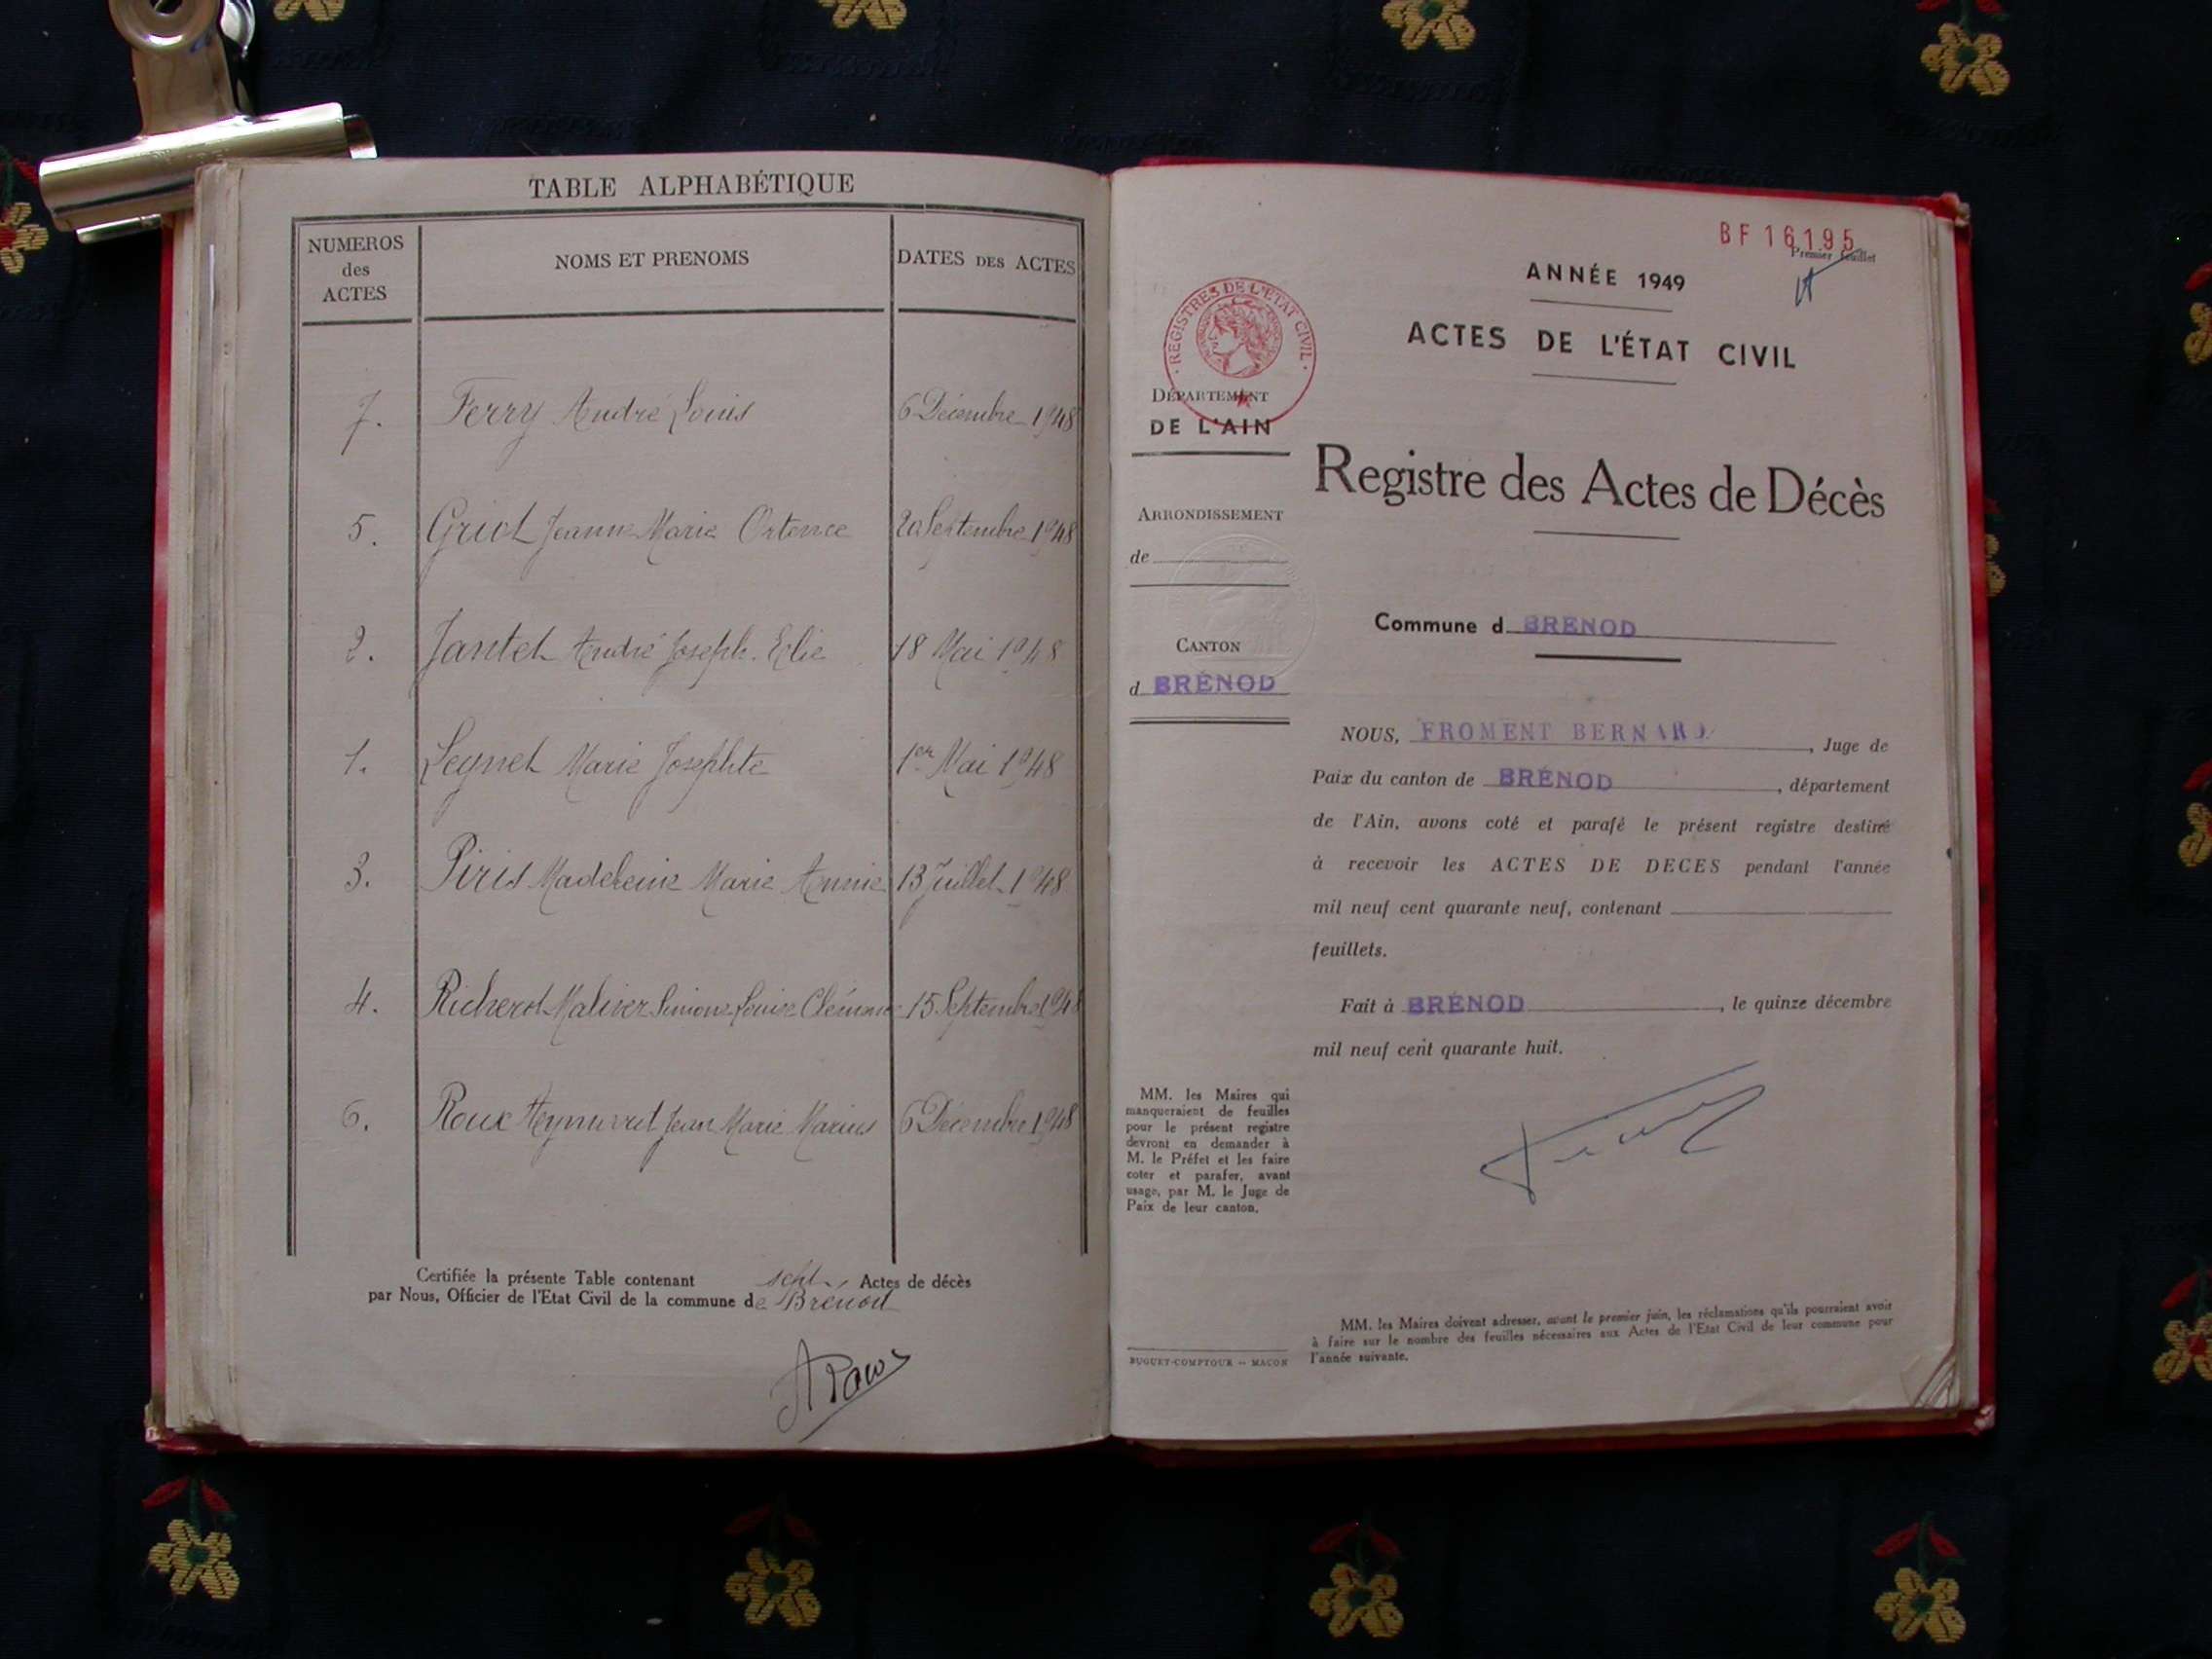 TABLE ALPHABÉTIQUE
NUMEROS des ACTES NOMS ET PRENOMS DATES DES ACTES
7. Ferry André Louis 6 Décembre 1948
5. Griot Jeanne Marie Ortence 20 Septembre 1948
2. Jantet André Joseph Elie 18 Mai 1948
1. Leynet Marie Josephte 1er Mai 1948
3. Piris Madeleine Marie Annie 13 Juillet 1948
4. Richerot Maliver Simone Louise 15 Septembre 1948
6. Roux Jean Marie Marius 6 Décembre 1948
Certifiée la présente Table contenant sept Actes de décès
par Nous, Officier de l'Etat Civil de la commune de Brénod
BF 16195
Premier feuillet
ANNÉE 1949
ACTES DE L'ÉTAT CIVIL
· REGISTRES DE L'ETAT CIVIL ·
DÉPARTEMENT
DE L'AIN
Registre des Actes de Décès
ARRONDISSEMENT
de
Commune d BRENOD
CANTON
d BRÉNOD
NOUS, FROMENT BERNARD, Juge de
Paix du canton de BRÉNOD, département
de l'Ain, avons coté et parafé le présent registre destiné
à recevoir les ACTES DE DECES pendant l'année
mil neuf cent quarante neuf, contenant
feuillets.
Fait à BRÉNOD, le quinze décembre
mil neuf cent quarante huit.
MM. les Maires qui
manqueraient de feuilles
pour le présent registre
devront en demander à
M. le Préfet et les faire
coter et parafer, avant
usage, par M. le Juge de
Paix de leur canton.
MM. les Maires doivent adresser, avant le premier juin, les réclamations qu'ils pourraient avoir
à faire sur le nombre des feuilles nécessaires aux Actes de l'Etat Civil de leur commune pour
l'année suivante.
BUGUET-COMPTOUR -- MACON